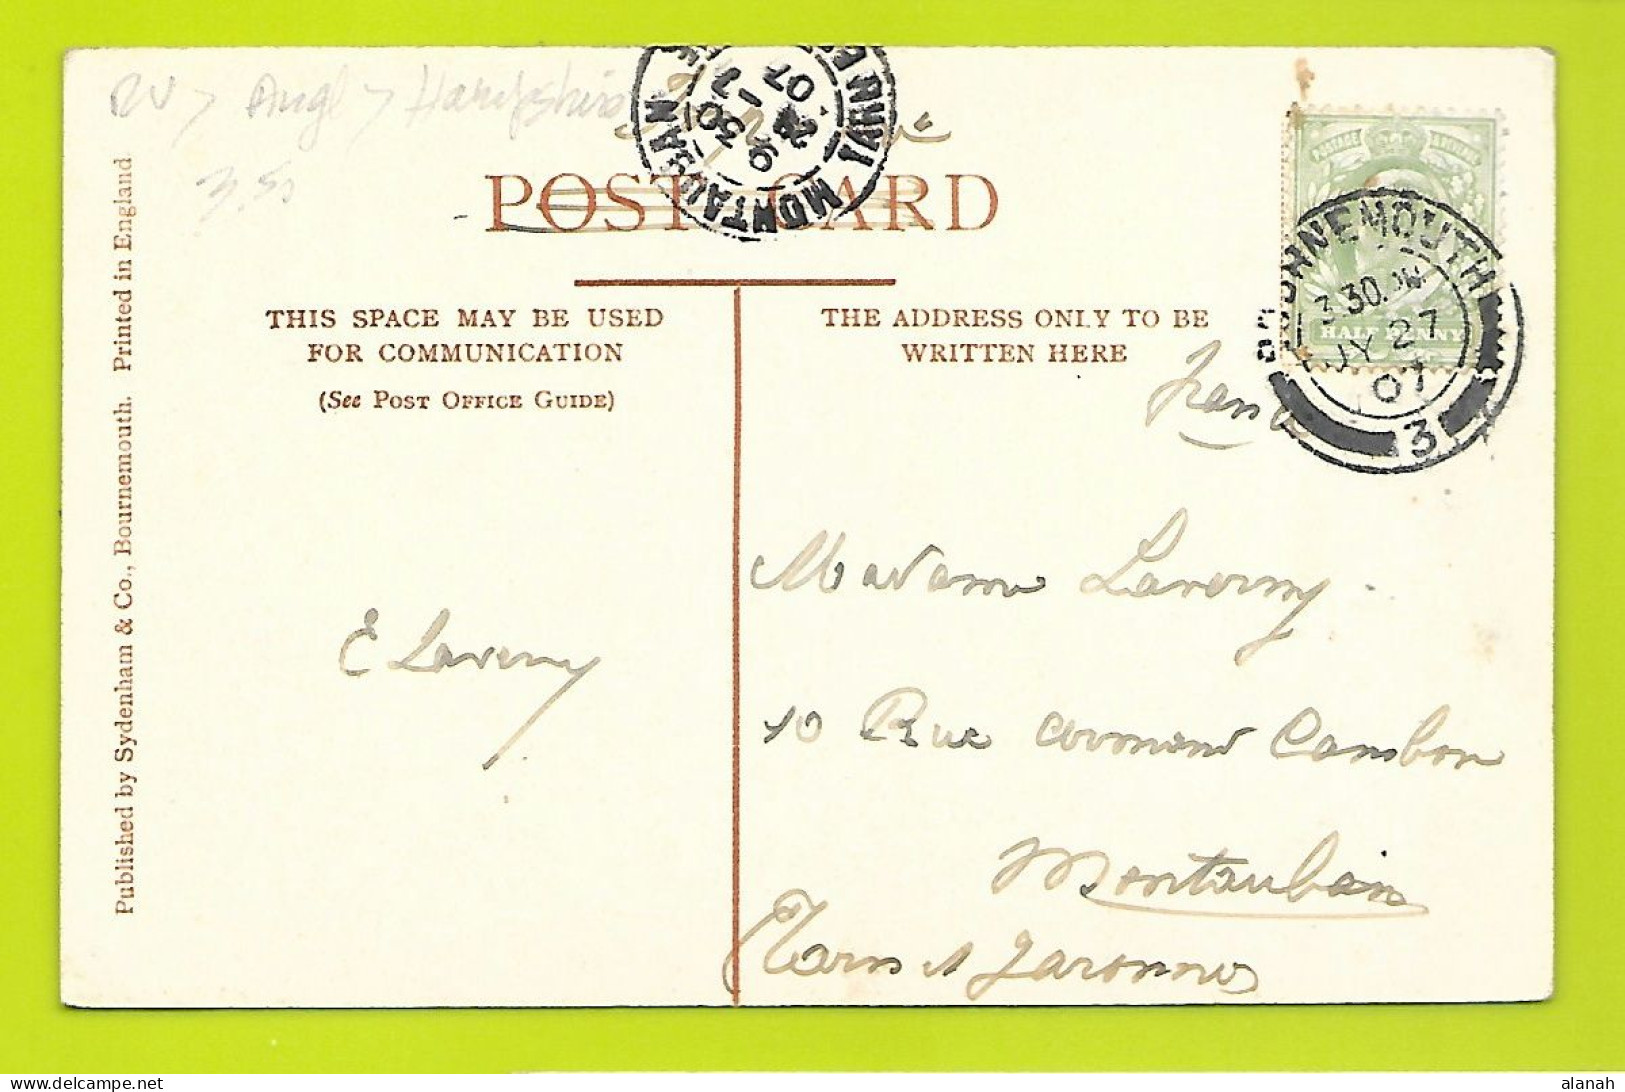 RV > Angl > Hampshire
3.50
POST CARD
MONTAUBAN
9 30
07
POSTAGE REVENUE
HALF PENNY
BOURNEMOUTH
3.30.PM
JY 27
07
3
THIS SPACE MAY BE USED
FOR COMMUNICATION
(See POST OFFICE GUIDE)
THE ADDRESS ONLY TO BE
WRITTEN HERE
France
E Laverny
Madame Laverny
10 Rue Armand Cambon
Montauban
Tarn et Garonne
Published by Sydenham & Co., Bournemouth. Printed in England
alanah